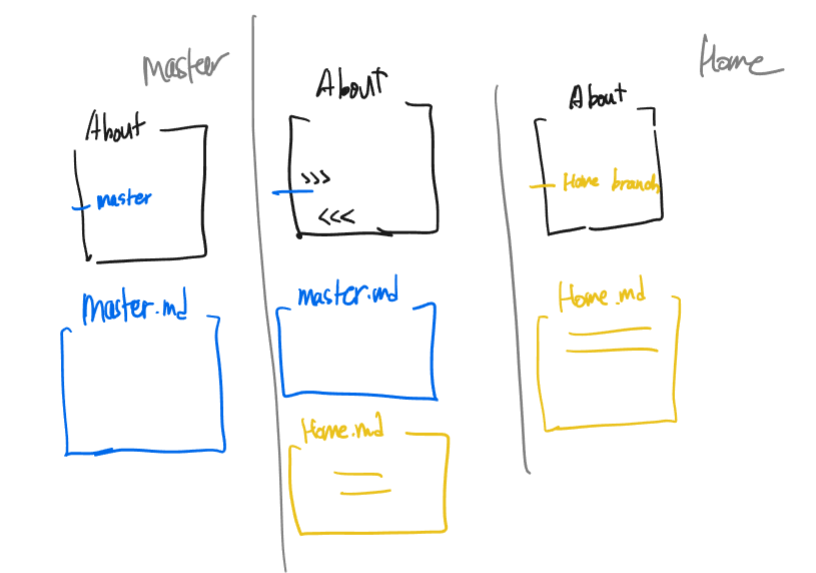 Master
About
master
Master.md
About
>>>
<<<
master.md
Home.md
Home
About
Home branch
Home.md